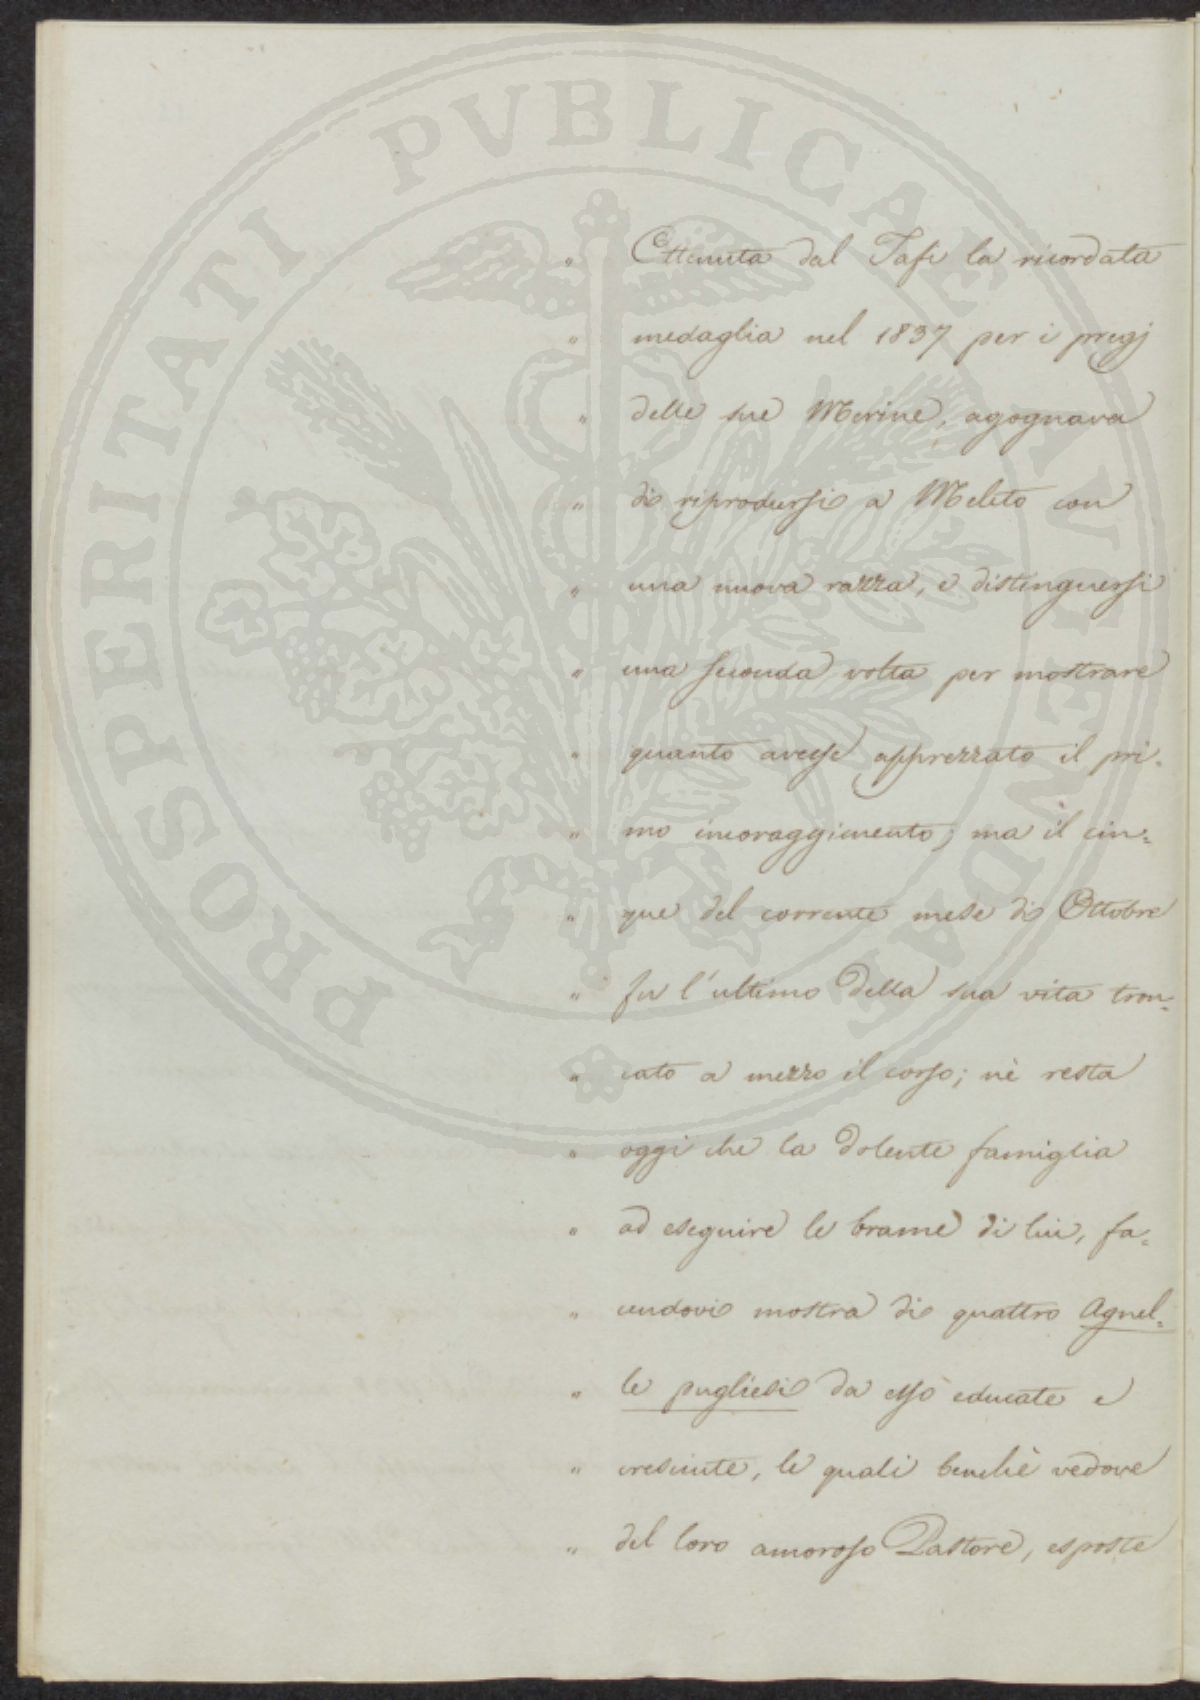 PROSPERITATI PVBLICAE AVGENDAE
" Ottenuta dal Tafi la ricordata
" medaglia nel 1837 per i pregj
" delle sue Merine, agognava
" di riprodursi a Meleto con
" una nuova razza, e distinguersi
" una seconda volta per mostrare
" quanto avesse apprezzato il pri-
" mo incoraggimento; ma il cin-
" que del corrente mese di Ottobre
" fu l'ultimo della sua vita tron-
" cato a mezzo il corso; nè resta
" oggi che la dolente famiglia
" ad eseguire le brame di lui, fa-
" cendovi mostra di quattro Agnel-
" le pugliesi da esso educate e
" cresciute, le quali benchè vedove
" del loro amoroso Pastore, esposte